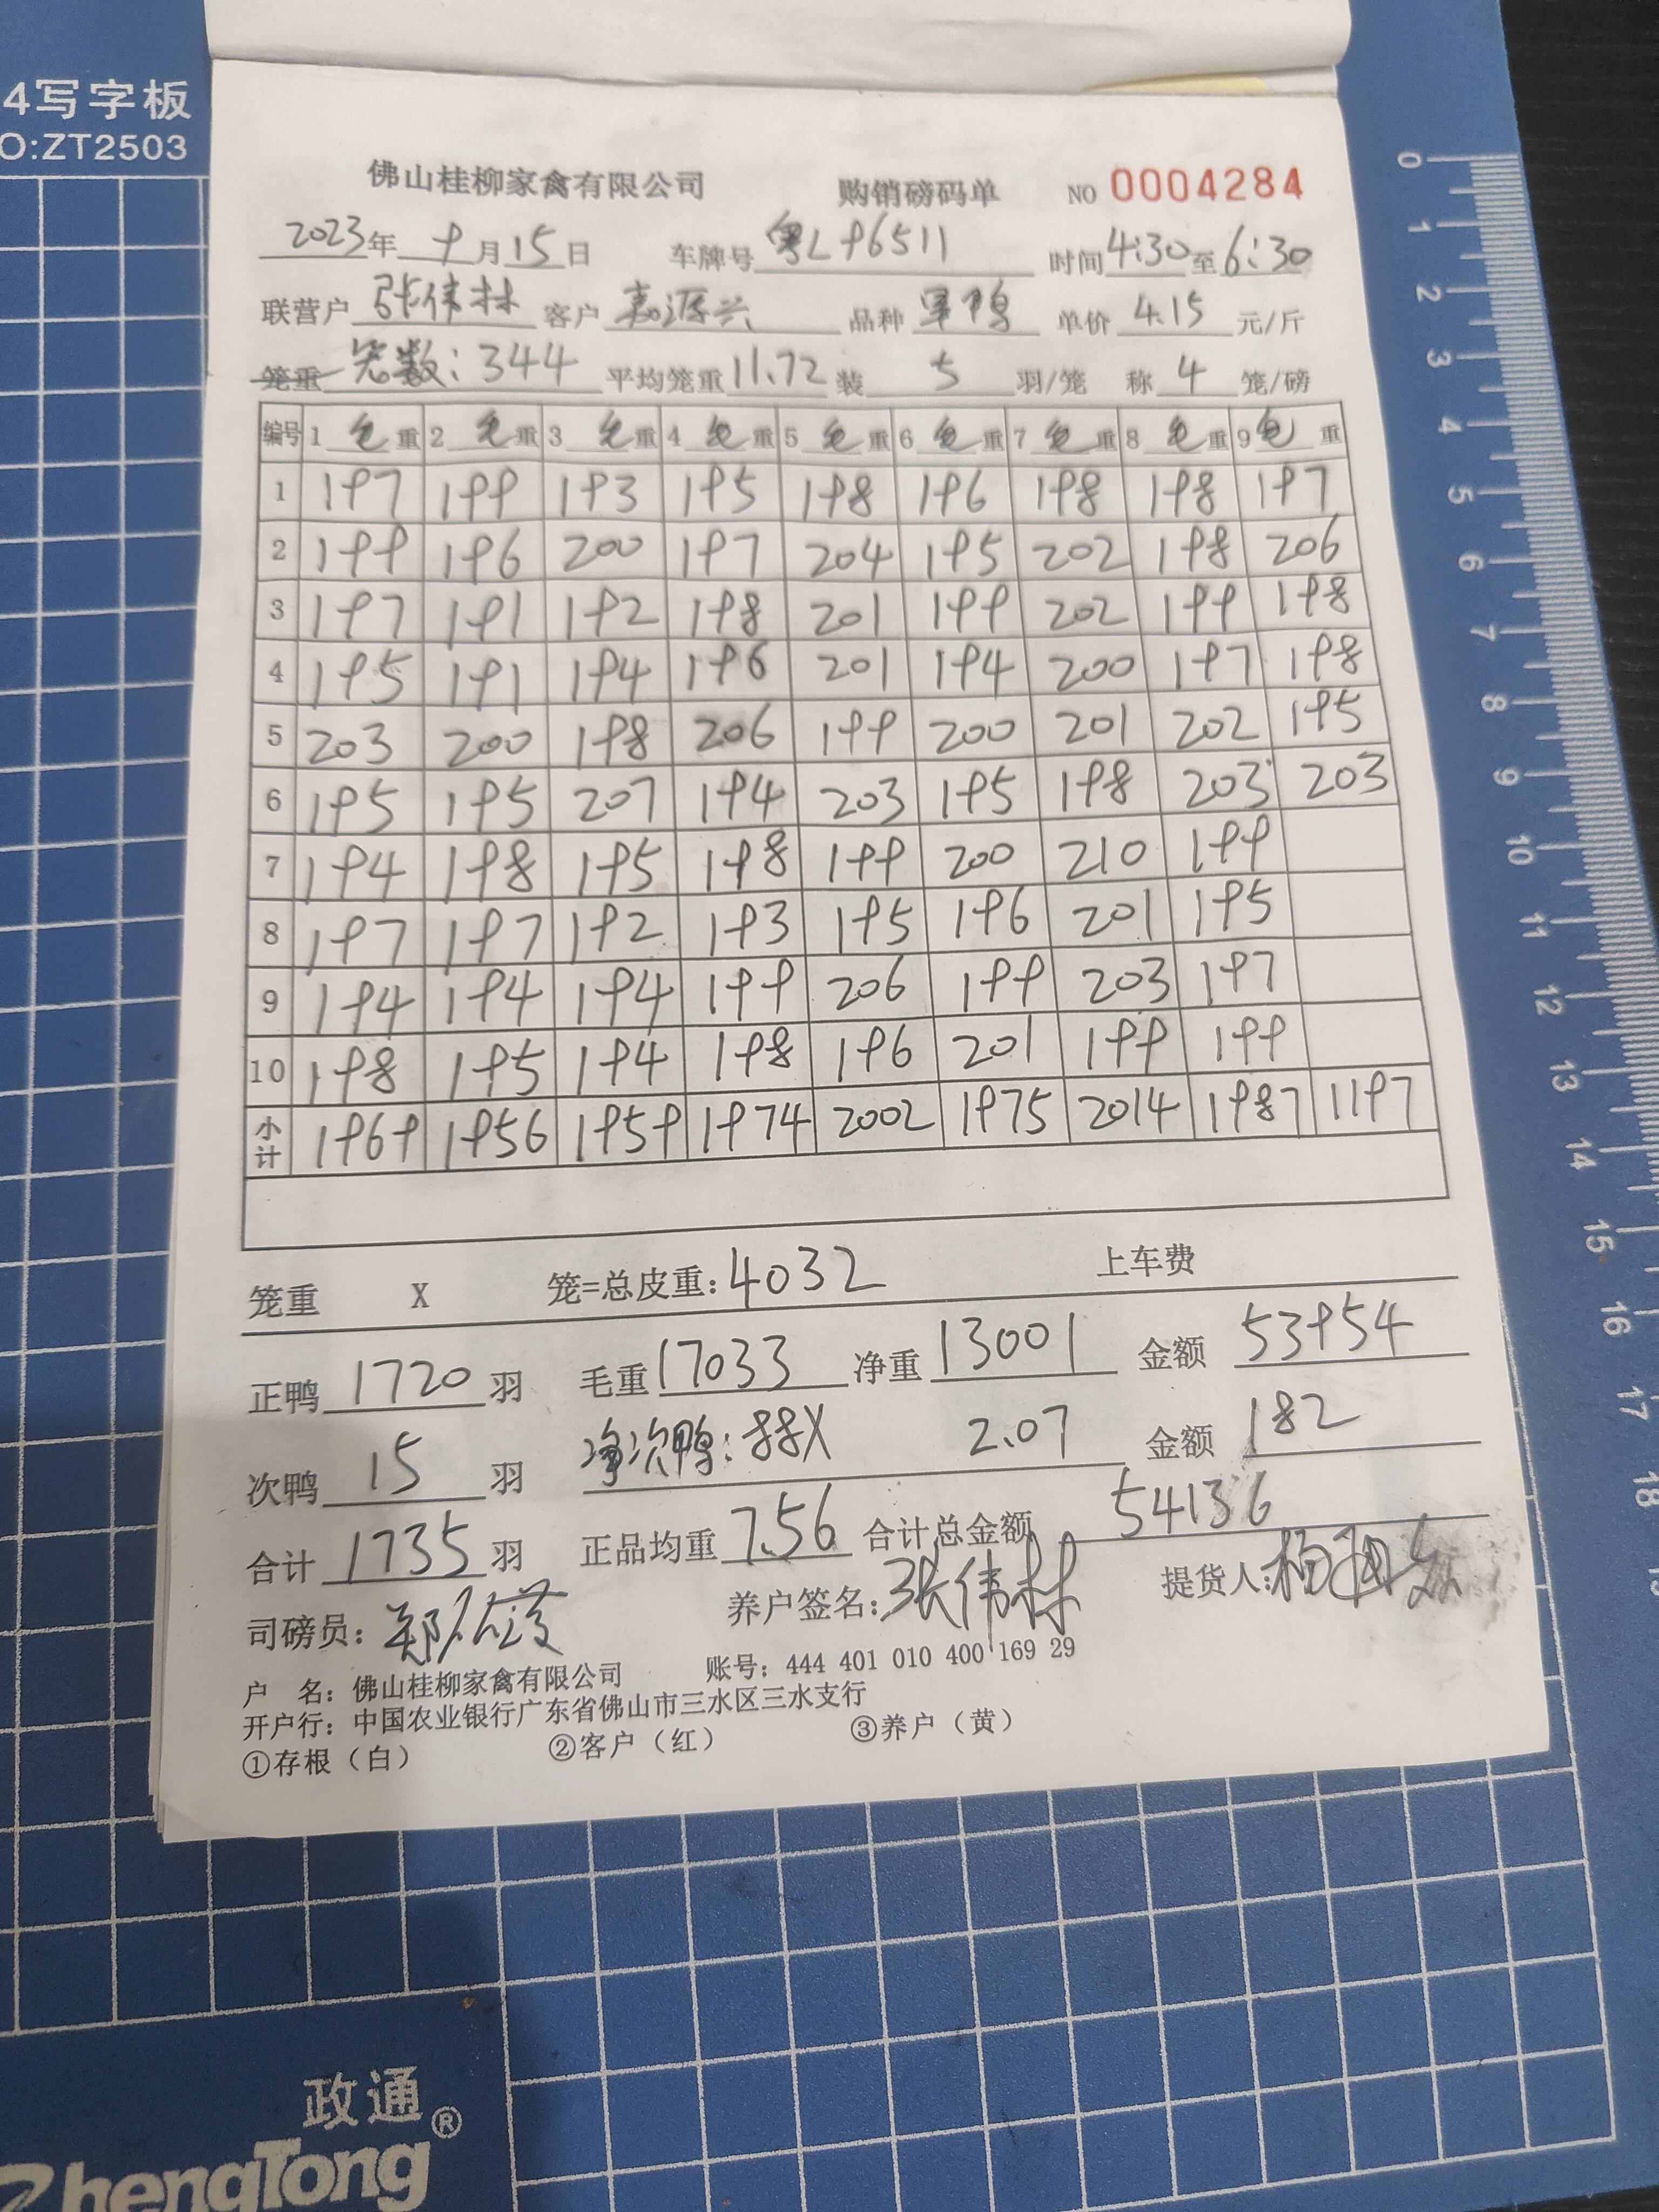 4写字板
O:ZT2503
佛山桂柳家禽有限公司 购销磅码单 NO 0004284
2023年 9月15日 车牌号 粤L96511 时间 4:30 至 6:30
联营户 张伟林 客户 嘉源兴 品种 单价 4.15 元/斤
笼重 笼数: 344 平均笼重 11.72 装 5 羽/笼 称 4 笼/磅
编号 1 毛重 2 毛重 3 毛重 4 毛重 5 毛重 6 毛重 7 毛重 8 毛重 9 毛重
1 197 199 193 195 198 196 198 198 197
2 199 196 200 197 204 195 202 198 206
3 197 191 192 198 201 199 202 199 198
4 195 191 194 196 201 194 200 197 198
5 203 200 198 206 199 200 201 202 195
6 195 195 207 194 203 195 198 203 203
7 194 198 195 198 199 200 210 199
8 197 197 192 193 195 196 201 195
9 194 194 194 199 206 199 203 197
10 198 195 194 198 196 201 199 199
小计 1969 1956 1959 1974 2002 1975 2014 1987 1197
笼重 X 笼=总皮重: 4032 上车费
正鸭 1720 羽 毛重 17033 净重 13001 金额 53954
次鸭 15 羽 净次鸭: 88X 2.07 金额 182
合计 1735 羽 正品均重 7.56 合计总金额 54136
司磅员: 养户签名: 张伟林 提货人:
户 名: 佛山桂柳家禽有限公司 账号: 444 401 010 400 169 29
开户行: 中国农业银行广东省佛山市三水区三水支行
①存根（白） ②客户（红） ③养户（黄）
0
1
2
3
4
5
6
7
8
9
10
11
12
13
14
15
16
17
18
政通®
ZhengTong